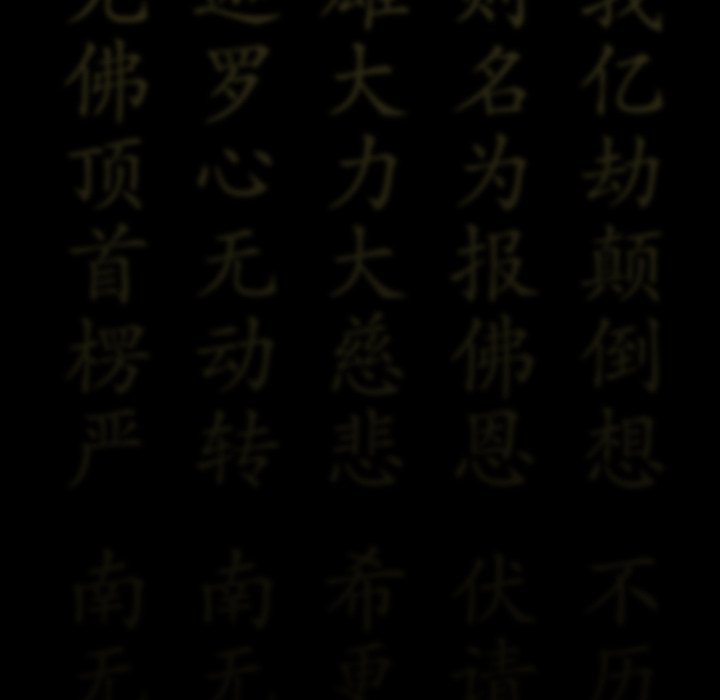 我亿劫颠倒想 不历
则名为报佛恩 伏请
雄大力大慈悲 希更
迦罗心无动转 南无
无佛顶首楞严 南无